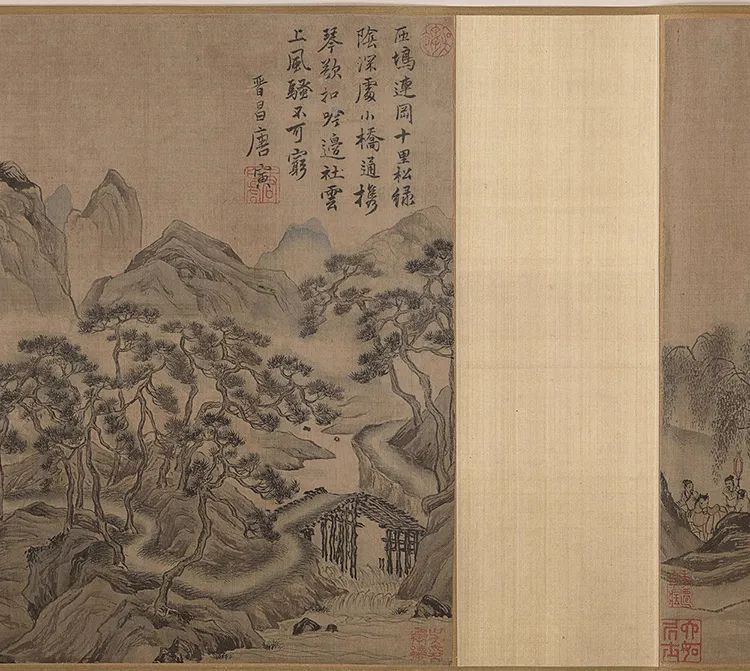 六如居士
塢連岡十里松綠
陰深處小橋通攜
琴欲邊社雲
上風騷不可窮
晋昌唐寅